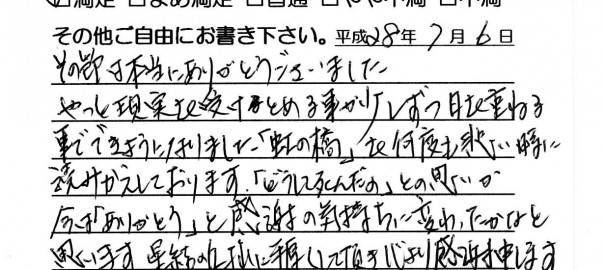 ☑満足 □まあ満足 □普通 □やや不満 □不満
その他ご自由にお書き下さい。平成28年7月6日
その節は本当にありがとうございました
やっと現実を受けとめる事が少しずつ日を重ねる
事でできようになりました「虹の橋」を何度も悲しい時に
読みかえしております。「どうして死んだの」との思いが
今は「ありがとう」と感謝の気持ちに変わったかなと
思います に 頂き 感謝申します